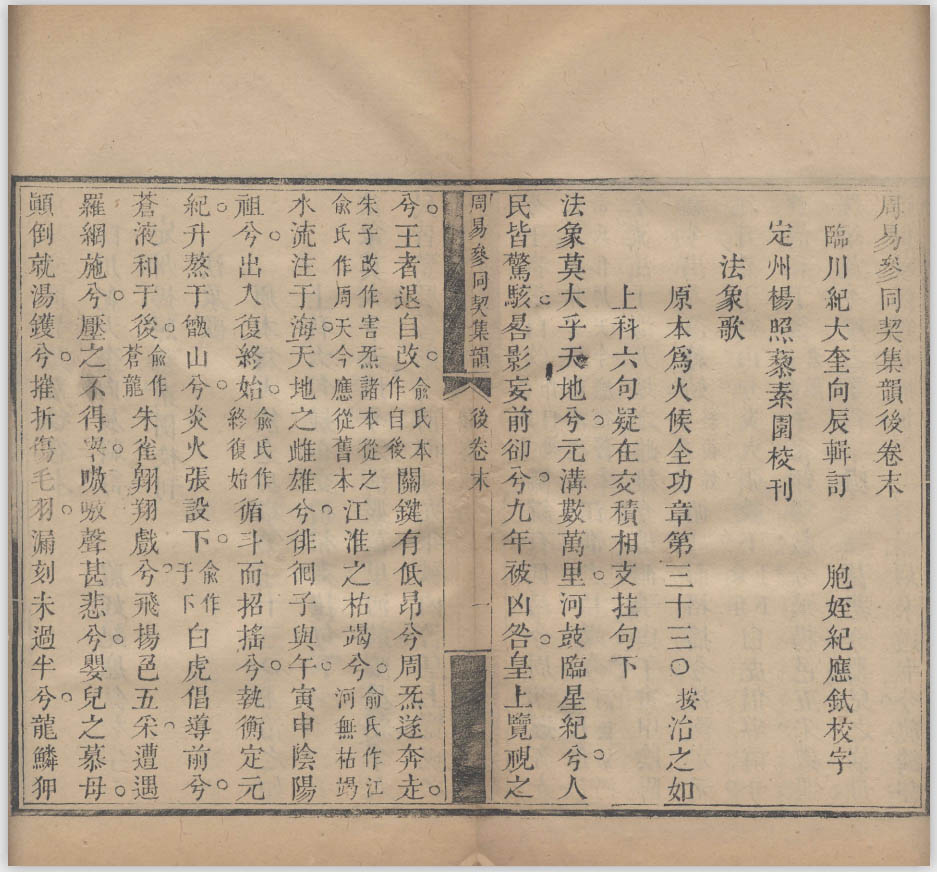 周易參同契集韻後卷末
臨川紀大奎向辰輯訂　胞姪紀應鉽校字
定州楊照藜素園校刊
法象歌
原本為火候全功章第三十三○按治之如
上科六句疑在交積相支拄句下
法象莫大乎天地兮元溝數萬里河鼓臨星紀兮人
民皆驚駭晷影妄前卻兮九年被凶咎皇上覽視之
周易參同契集韻　後卷末　一
兮王者退自改俞氏本作自後關鍵有低昂兮周炁遂奔走
朱子改作害炁諸本從之俞氏作周天今應從舊本江淮之枯竭兮俞氏作江河無枯竭
水流注于海天地之雌雄兮徘徊子與午寅申陰陽
祖兮出入復終始俞氏作終復始循斗而招搖兮執衡定元
紀升熬于甑山兮炎火張設下俞作于下白虎倡導前兮
蒼液和于後俞作蒼龍朱雀翱翔戲兮飛揚色五采遭遇
羅網施兮壓之不得舉嗷嗷聲甚悲兮嬰兒之慕母
顛倒就湯鑊兮摧折傷毛羽漏刻未過半兮龍鱗狎